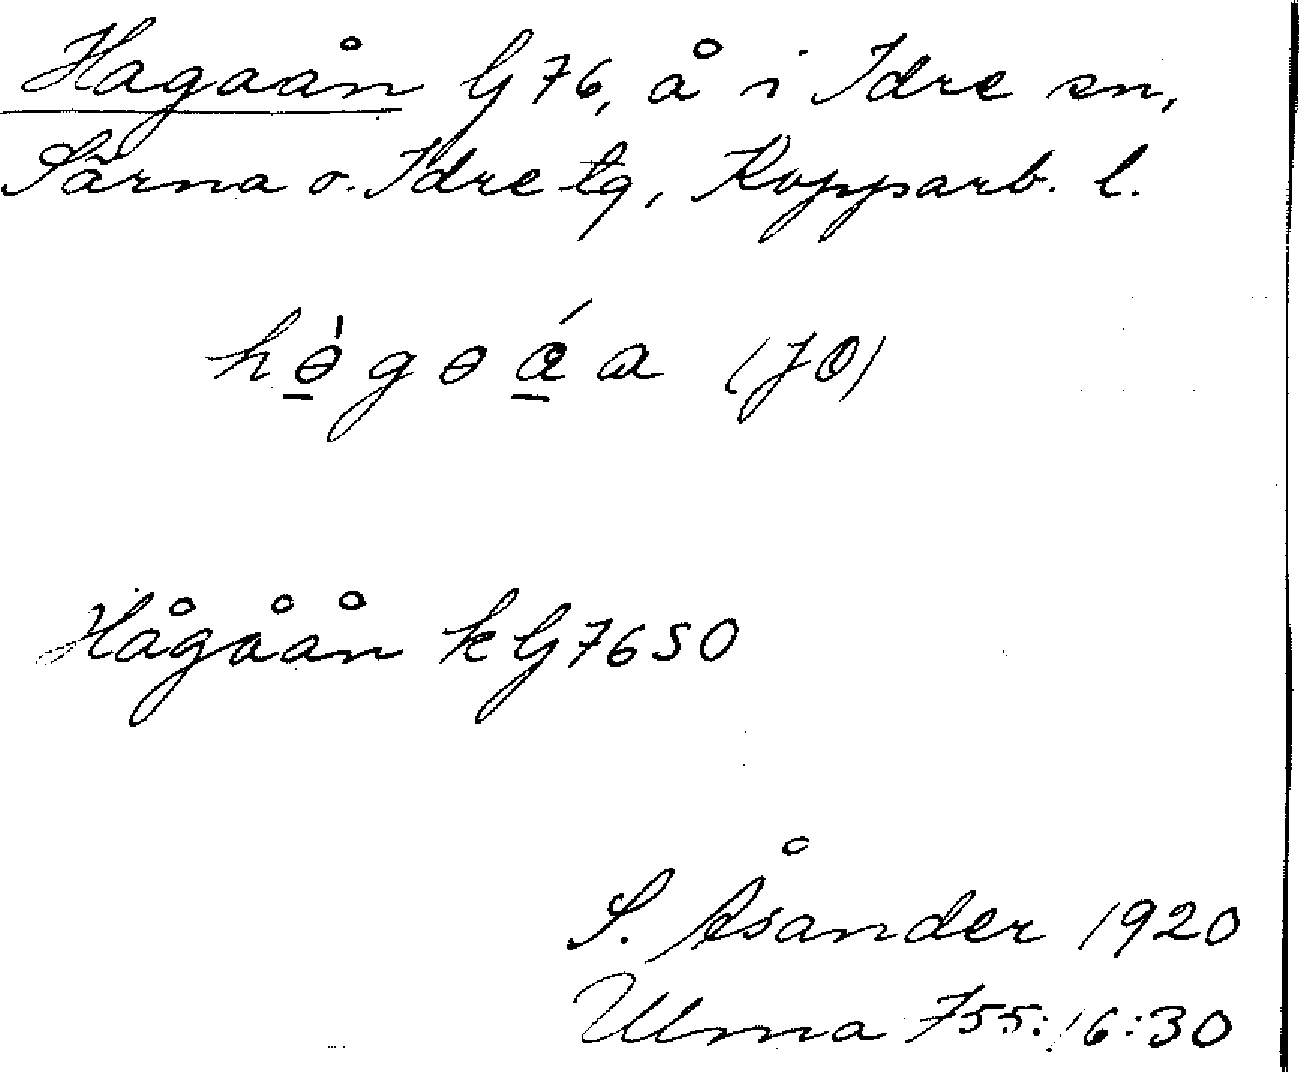 Hagaån G 76, å i Idre sn,
Särna o. Idre tg, Kopparb. l.
hə̀gəáa (JO)
Hågåån k G 76 SO
S. Åsander 1920
Ulma 755:16:30